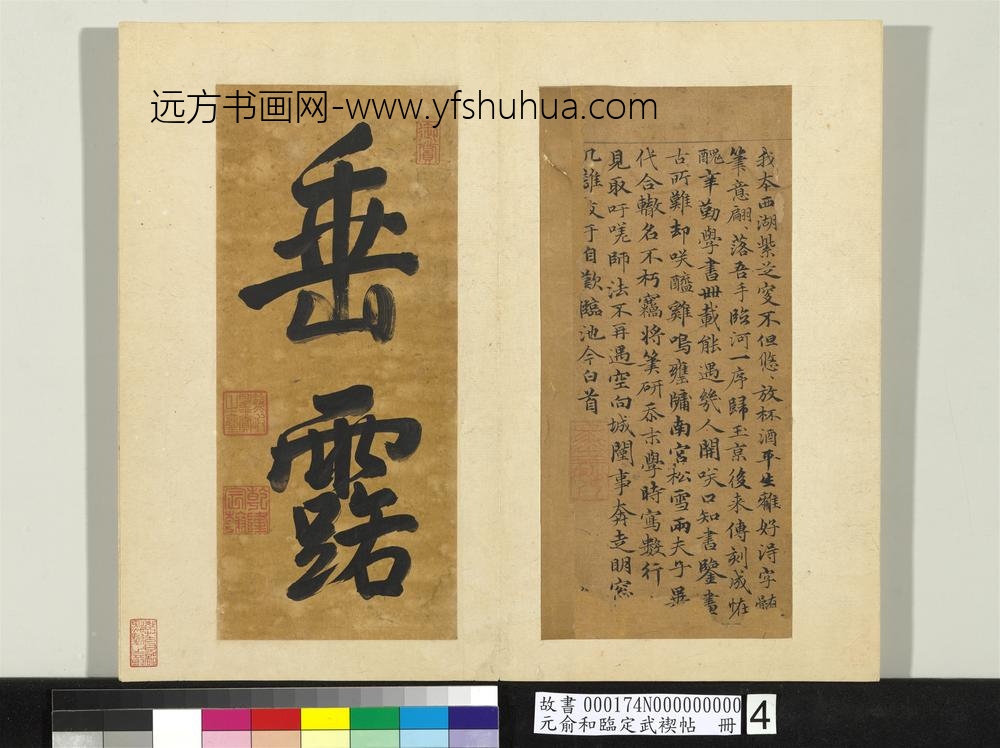 远方书画网-www.yfshuhua.com
我本西湖紫芝叟不但悠、放杯酒平生好淂字髓
筆意翩、落吾手臨河一序歸玉京後來傳刻成恠
醜辛勤學書卌載能遇幾人開咲口知書鑒書
古所難却咲醯雞鳴甕牖南宮松雪兩夫子異
代合轍名不朽竊將筆研忝末學時寫數行
見取吁嗟師法不再遇空向城闉事奔走明窓
几誰于自歎臨池今白首
垂露
故書 000174N000000000
元俞和臨定武禊帖 冊
4